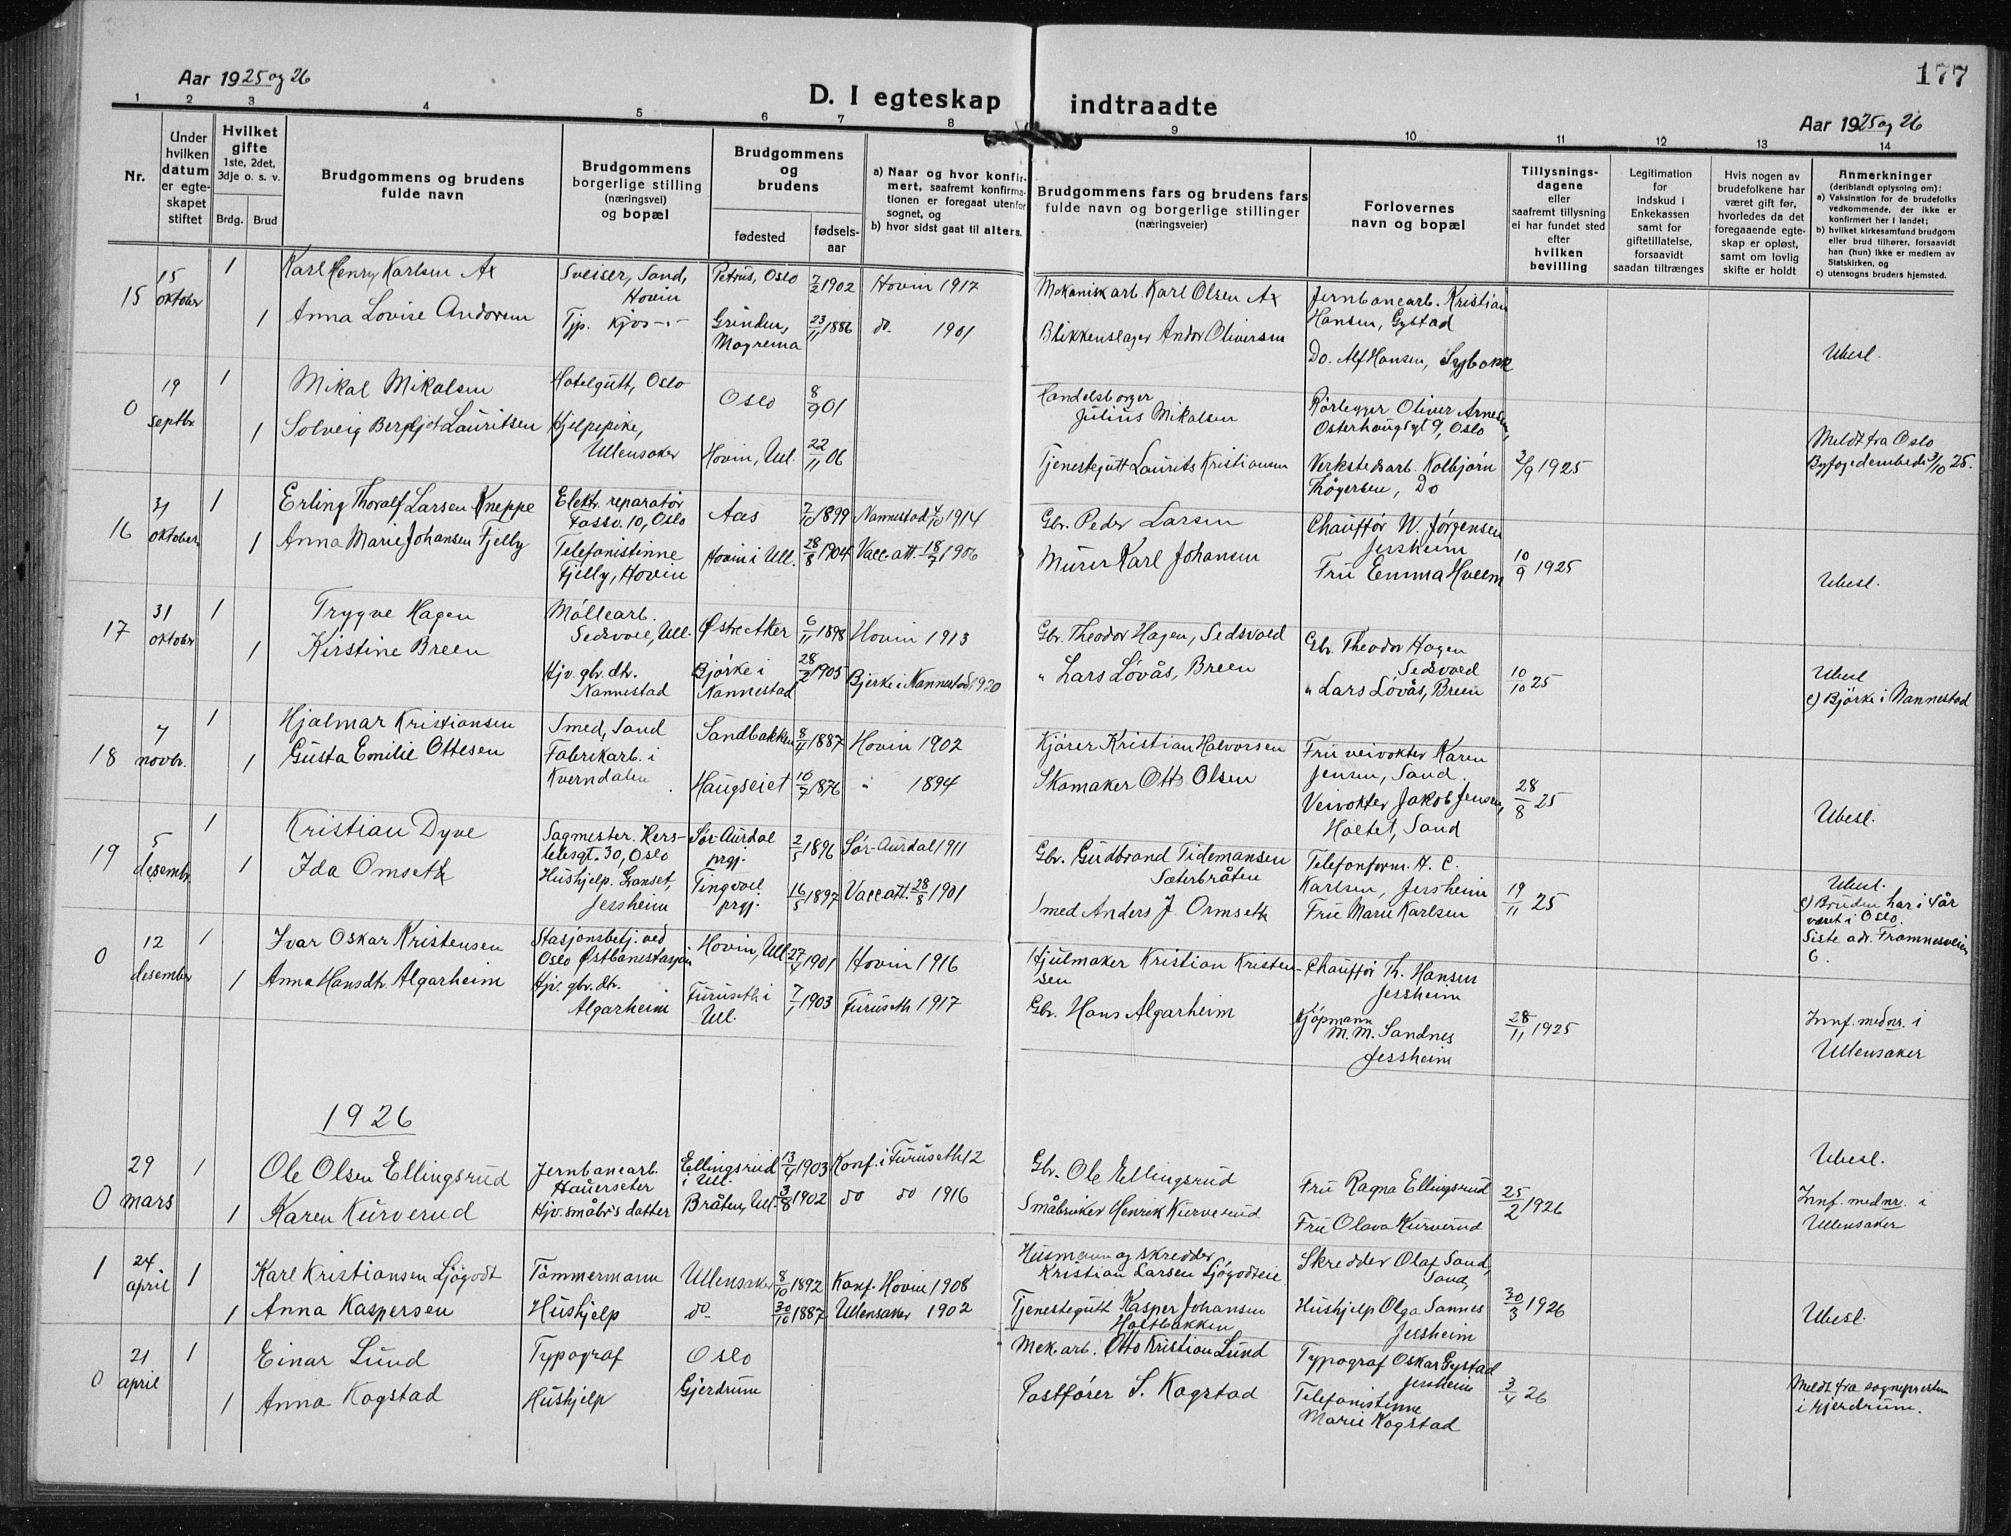 177
Aar 1925 og 26
D. I egteskap indtraadte
Aar 1925 og 26
1 2 3 4 5 6 7 8 9 10 11 12 13 14
Nr.
Under hvilken datum er egte-skapet stiftet
Hvilket gifte
1ste, 2det, 3dje o. s. v.
Brdg. Brud
Brudgommens og brudens fulde navn
Brudgommens borgerlige stilling (næringsvei) og bopæl
Brudgommens og brudens
fødested
fødsels-aar
a) Naar og hvor konfir-mert, saafremt konfirma-tionen er foregaat utenfor sognet, og
b) hvor sidst gaat til alters.
Brudgommens fars og brudens fars fulde navn og borgerlige stillinger (næringsveier)
Forlovernes navn og bopæl
Tillysnings-dagene eller saafremt tillysning ei har fundet sted efter hvilken bevilling
Legitimation for indskud i Enkekassen samt for giftetillatelse, forsaavidt saadan tiltrænges
Hvis nogen av brudefolkene har været gift før, hvorledes da det foregaaende egte-skap er opløst, samt om lovlig skifte er holdt
Anmerkninger
(deriblandt oplysning om):
a) Vaksination for de brudefolks vedkommende, der ikke er konfirmert her i landet;
b) hvilket kirkesamfund brudgom eller brud tilhører, forsaavidt han (hun) ikke er medlem av Statskirken, og
c) utensogns bruders hjemsted.
15 15 oktober 1 Karl Henry Karlsen Ax Sveiser, Sand, Hovin Petrus, Oslo 7/2 1902 Hovin 1917 Mekanisk arb. Karl Olsen Ax Jernbanearb. Kristian Hansen, Gystad
1 Anna Lovise Andorsen Typ. Kjos -"- Grinden, Mogrema 23/11 1886 do. 1901 Blikkenslager Andor Oliversen Do. Alf Hansen, Ubesl.
0 19 septbr. 1 Mikal Mikalsen Hotelgutt, Oslo Oslo 8/9 01 Handelsborger Julius Mikalsen Rørlegger Oliver Arnesen, Osterhaugsgt 9, Oslo
1 Solveig Bergljot Lauritsen Hjelpepike, Ullensaker Hovin, Ull. 22/11 06 Tjenestegutt Laurits Kristiansen Verkstedsarb. Kolbjørn Thøgersen, Do 3/9 1925 Meldt fra Oslo Byfogedembede 3/10 25.
16 31 oktober 1 Erling Thoralf Larsen Kneppe Elektr. reparatør Fossv. 10, Oslo Aas 7/10 1899 Nannestad 4/10 1914 Gbr. Peder Larsen Chauffør W. Jørgensen Jessheim
1 Anna Marie Johansen Fjelby Telefonistinne Fjelby, Hovin Hovin i Ull. 28/8 1904 Vacc. att. 18/7 1906 Murer Karl Johansen Fru Emma Hveem 10/9 1925 Ubesl.
17 31 oktober 1 Trygve Hagen Møllearb. Sedsvoll, Ull. Østre Aker 6/11 1898 Hovin 1913 Gbr. Theodor Hagen, Sedsvold Gbr. Theodor Hagen Sedsvold
1 Kirstine Breen Hjv. gbr. dtr. Nannestad Bjørke i Nannestad 28/2 1905 Bjerke i Nannestad 1920 " Lars Løvås, Breen " Lars Løvås, Breen 10/10 25 Ubesl c) Bjørke i Nannestad
18 7 novbr. 1 Hjalmar Kristiansen Smed, Sand Sandbakken 8/4 1887 Hovin 1902 Kjører Kristian Halvorsen Fru veivokter Karen Jensen, Sand.
1 Gusta Emilie Ottesen Fabrikarb. i Kverndalen Haugseiet 16/7 1876 " 1894 Skomaker Otto Olsen Veivokter Jakob Jensen, Holtet, Sand 28/8 25 Ubesl.
19 5 desembr. 1 Kristian Dyve Sagmester. Hers-lebsgt. 30, Oslo Sør-Aurdal prgj. 2/5 1896 Sør-Aurdal 1911 Gbr. Gudbrand Tidemansen Sæterbråten Telefonform. A. C. Karlsen, Jessheim
1 Ida Omseth Hushjelp. Granset, Jessheim Tingvoll prgj. 16/5 1897 Vacc att. 28/8 1901 Smed Anders J. Ormseth Fru Marie Karlsen 19/11 25 Ubesl. c) Bruden har i 4 år været i Oslo. Siste adr. Framnesveien 6.
0 12 desember 1 Ivar Oskar Kristensen Stasjonsbetj. ved Oslo Østbanestasjon Hovin, Ull 27/4 1901 Hovin 1916 Hjulmaker Kristian Kristen-sen Chauffør Th. Hansen Jessheim
1 Anna Hansdtr. Algarheim Hjv. gbr. dtr. Algarheim Furuseth i Ull. 7/1 1903 Furuseth 1917 Gbr. Hans Algarheim Kjøpmann M. M. Sandnes Jessheim 28/11 1925 Innf. med nr. i Ullensaker
1926
0 29 mars 1 Ole Olsen Ellingsrud Jernbanearb. Hauerseter Ellingsrud i Ull. 13/4 1903 Konf. i Furuseth 12 Gbr. Ole Ellingsrud Fru Ragna Ellingsrud Ubesl.
1 Karen Kurverud Hjv. småbr's datter Bråten, Ull. 3/8 1902 do do 1916 Småbruker Henrik Kurverud Fru Olava Kurverud 25/2 1926 Innf. med nr. i Ullensaker
1 24. april 1 Karl Kristiansen Sjøgodt Tømmermann Ullensaker 8/10 1892 Konf. Hovin 1908 Husmann og skredder Kristian Larsen Sjøgodteie Skredder Olaf Sand, Sand,
1 Anna Kaspersen Hushjelp do. 30/10 1887 Ullensaker 1902 Tjenestegutt Kasper Johansen Holtbakken Hushjelp Olga Sannes Jessheim 30/3 1926 Ubesl.
0 21 april 1 Einar Lund Typograf Oslo Mek. arb. Otto Kristian Lund Typograf Oskar Gystad Jessheim
1 Anna Kogstad Hushjelp Gjerdrum Postfører S. Kogstad Telefonistinne Marie Kogstad 3/4 26 Meldt fra sognepresten i Gjerdrum.